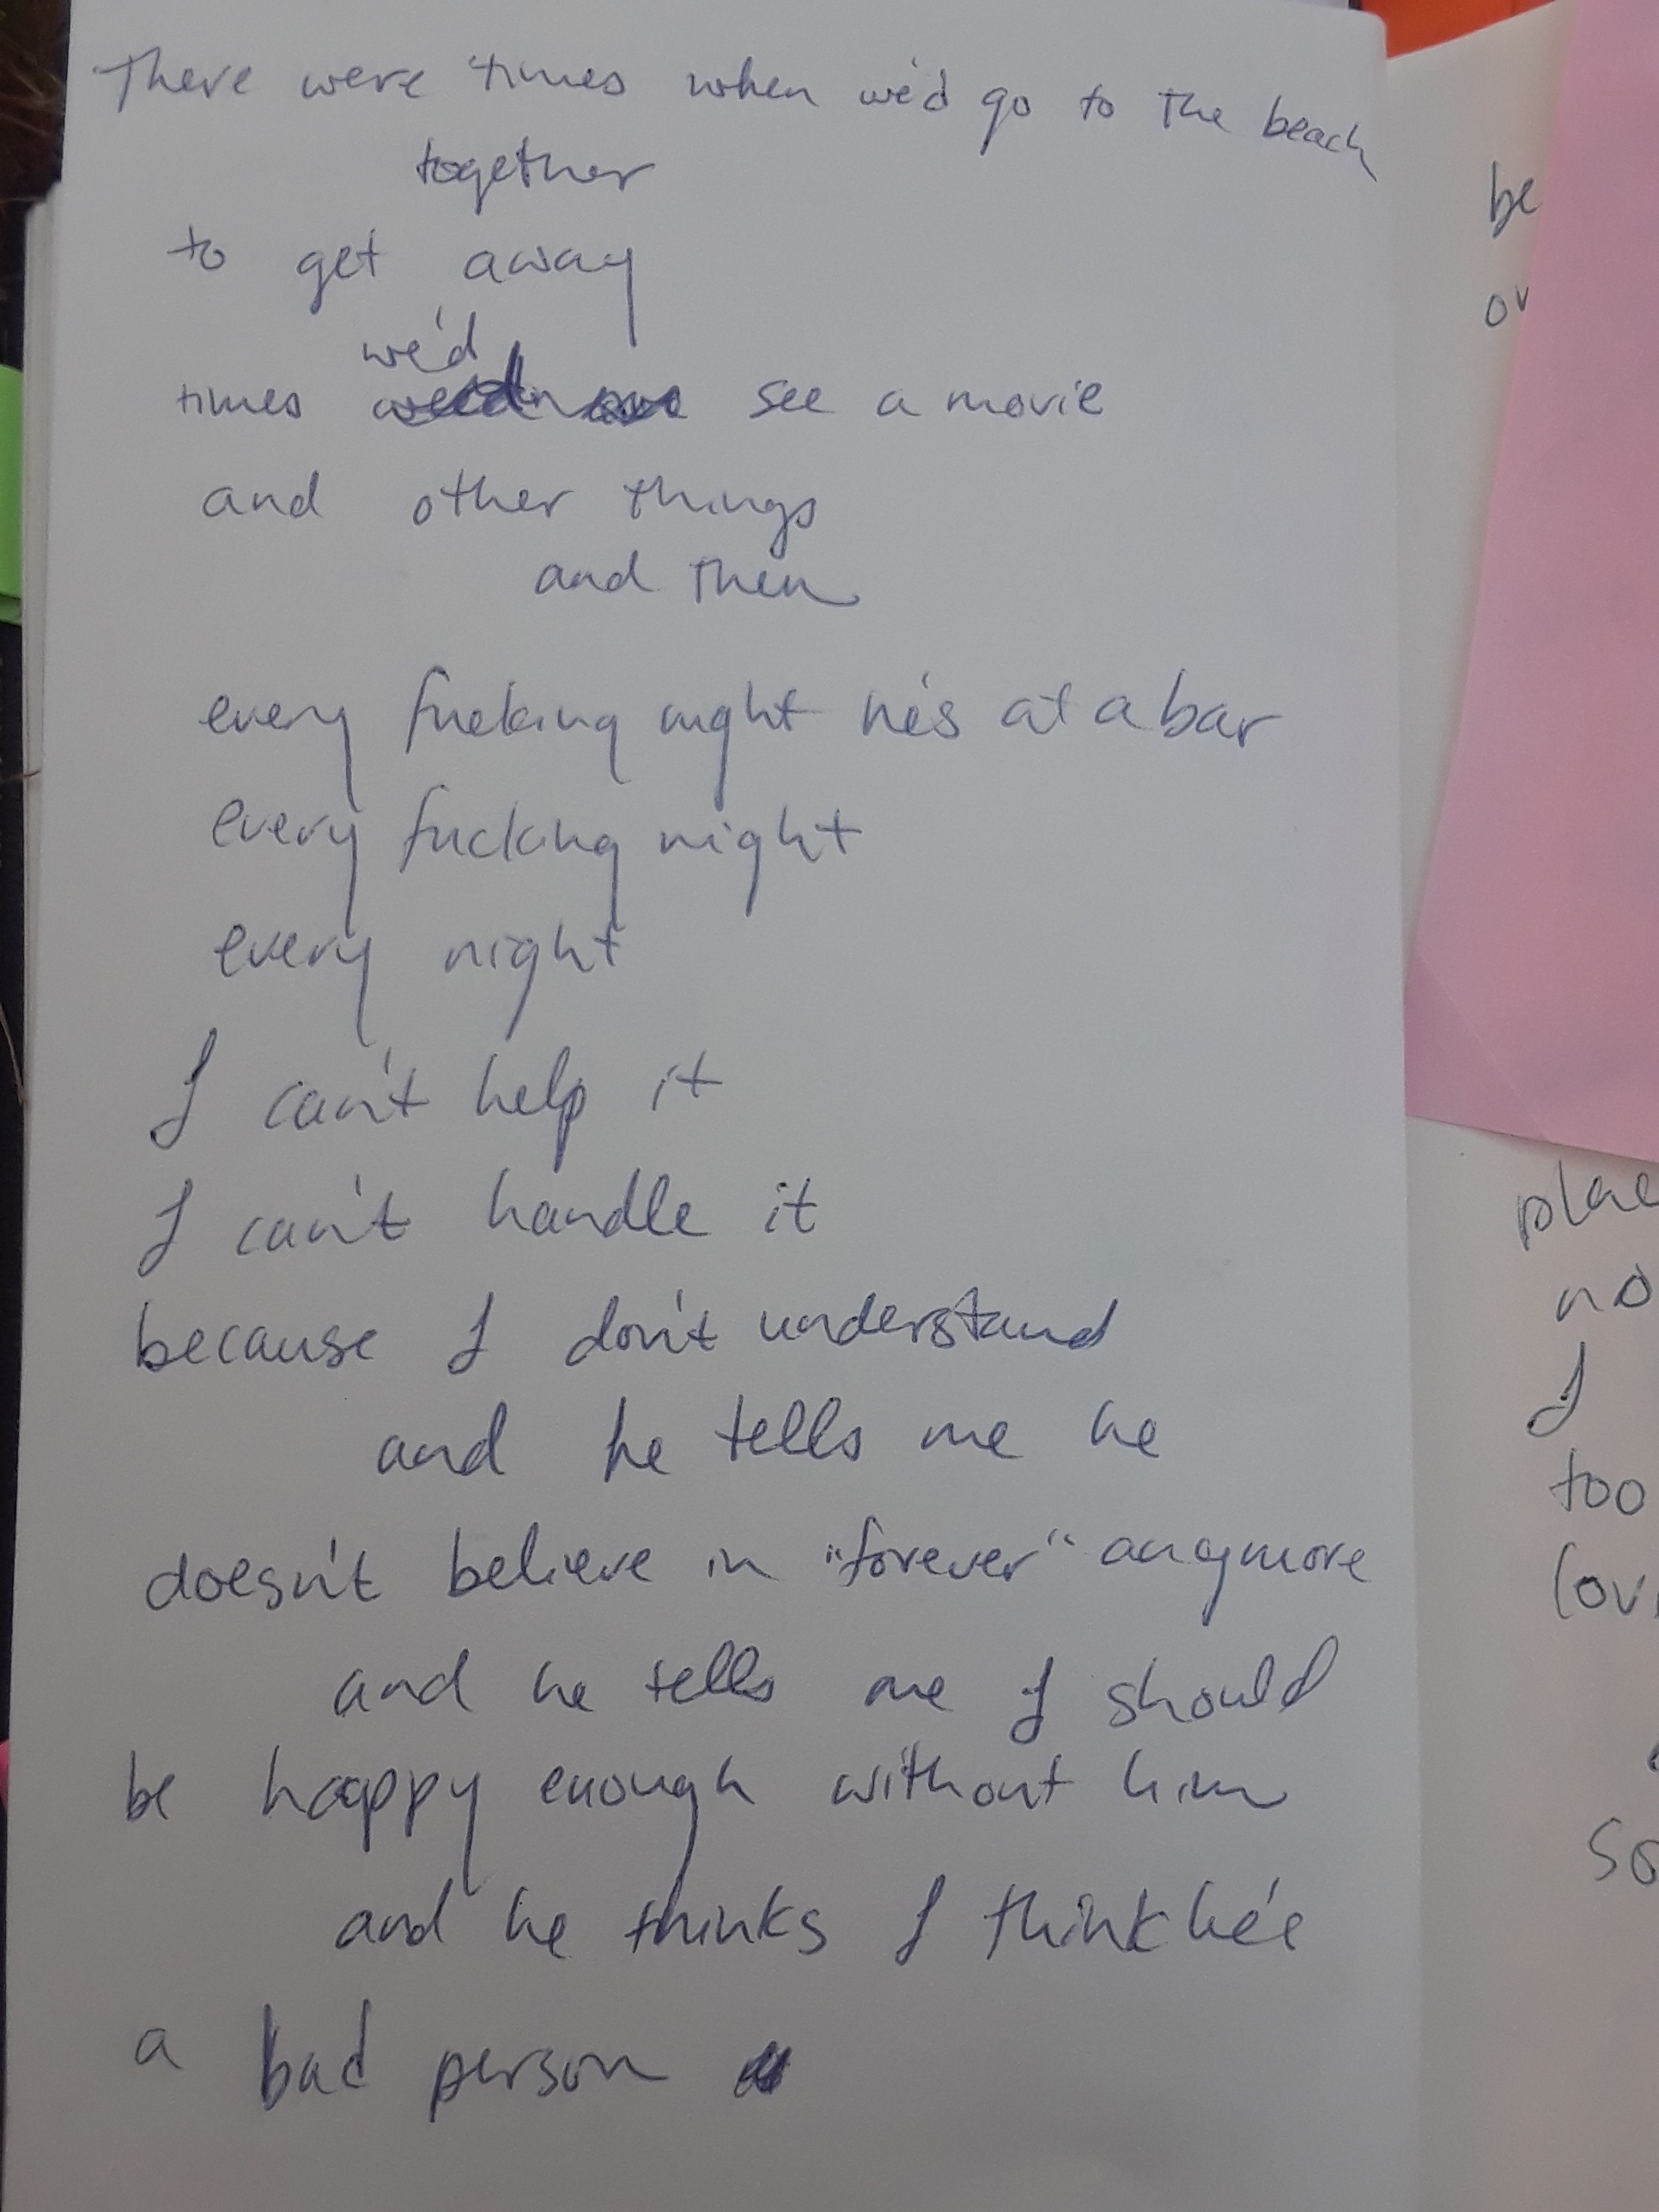 There were times when we'd go to the beach
together
to get away
we'd
times see a movie
and other things
and then
every fucking night he's at a bar
every fucking night
every night
I can't help it
I can't handle it
because I don't understand
and he tells me he
doesn't believe in "forever" anymore
and he tells me I should
be happy enough without him
and he thinks I think he's
a bad person
be
ov
plac
no
I
too
lov
so